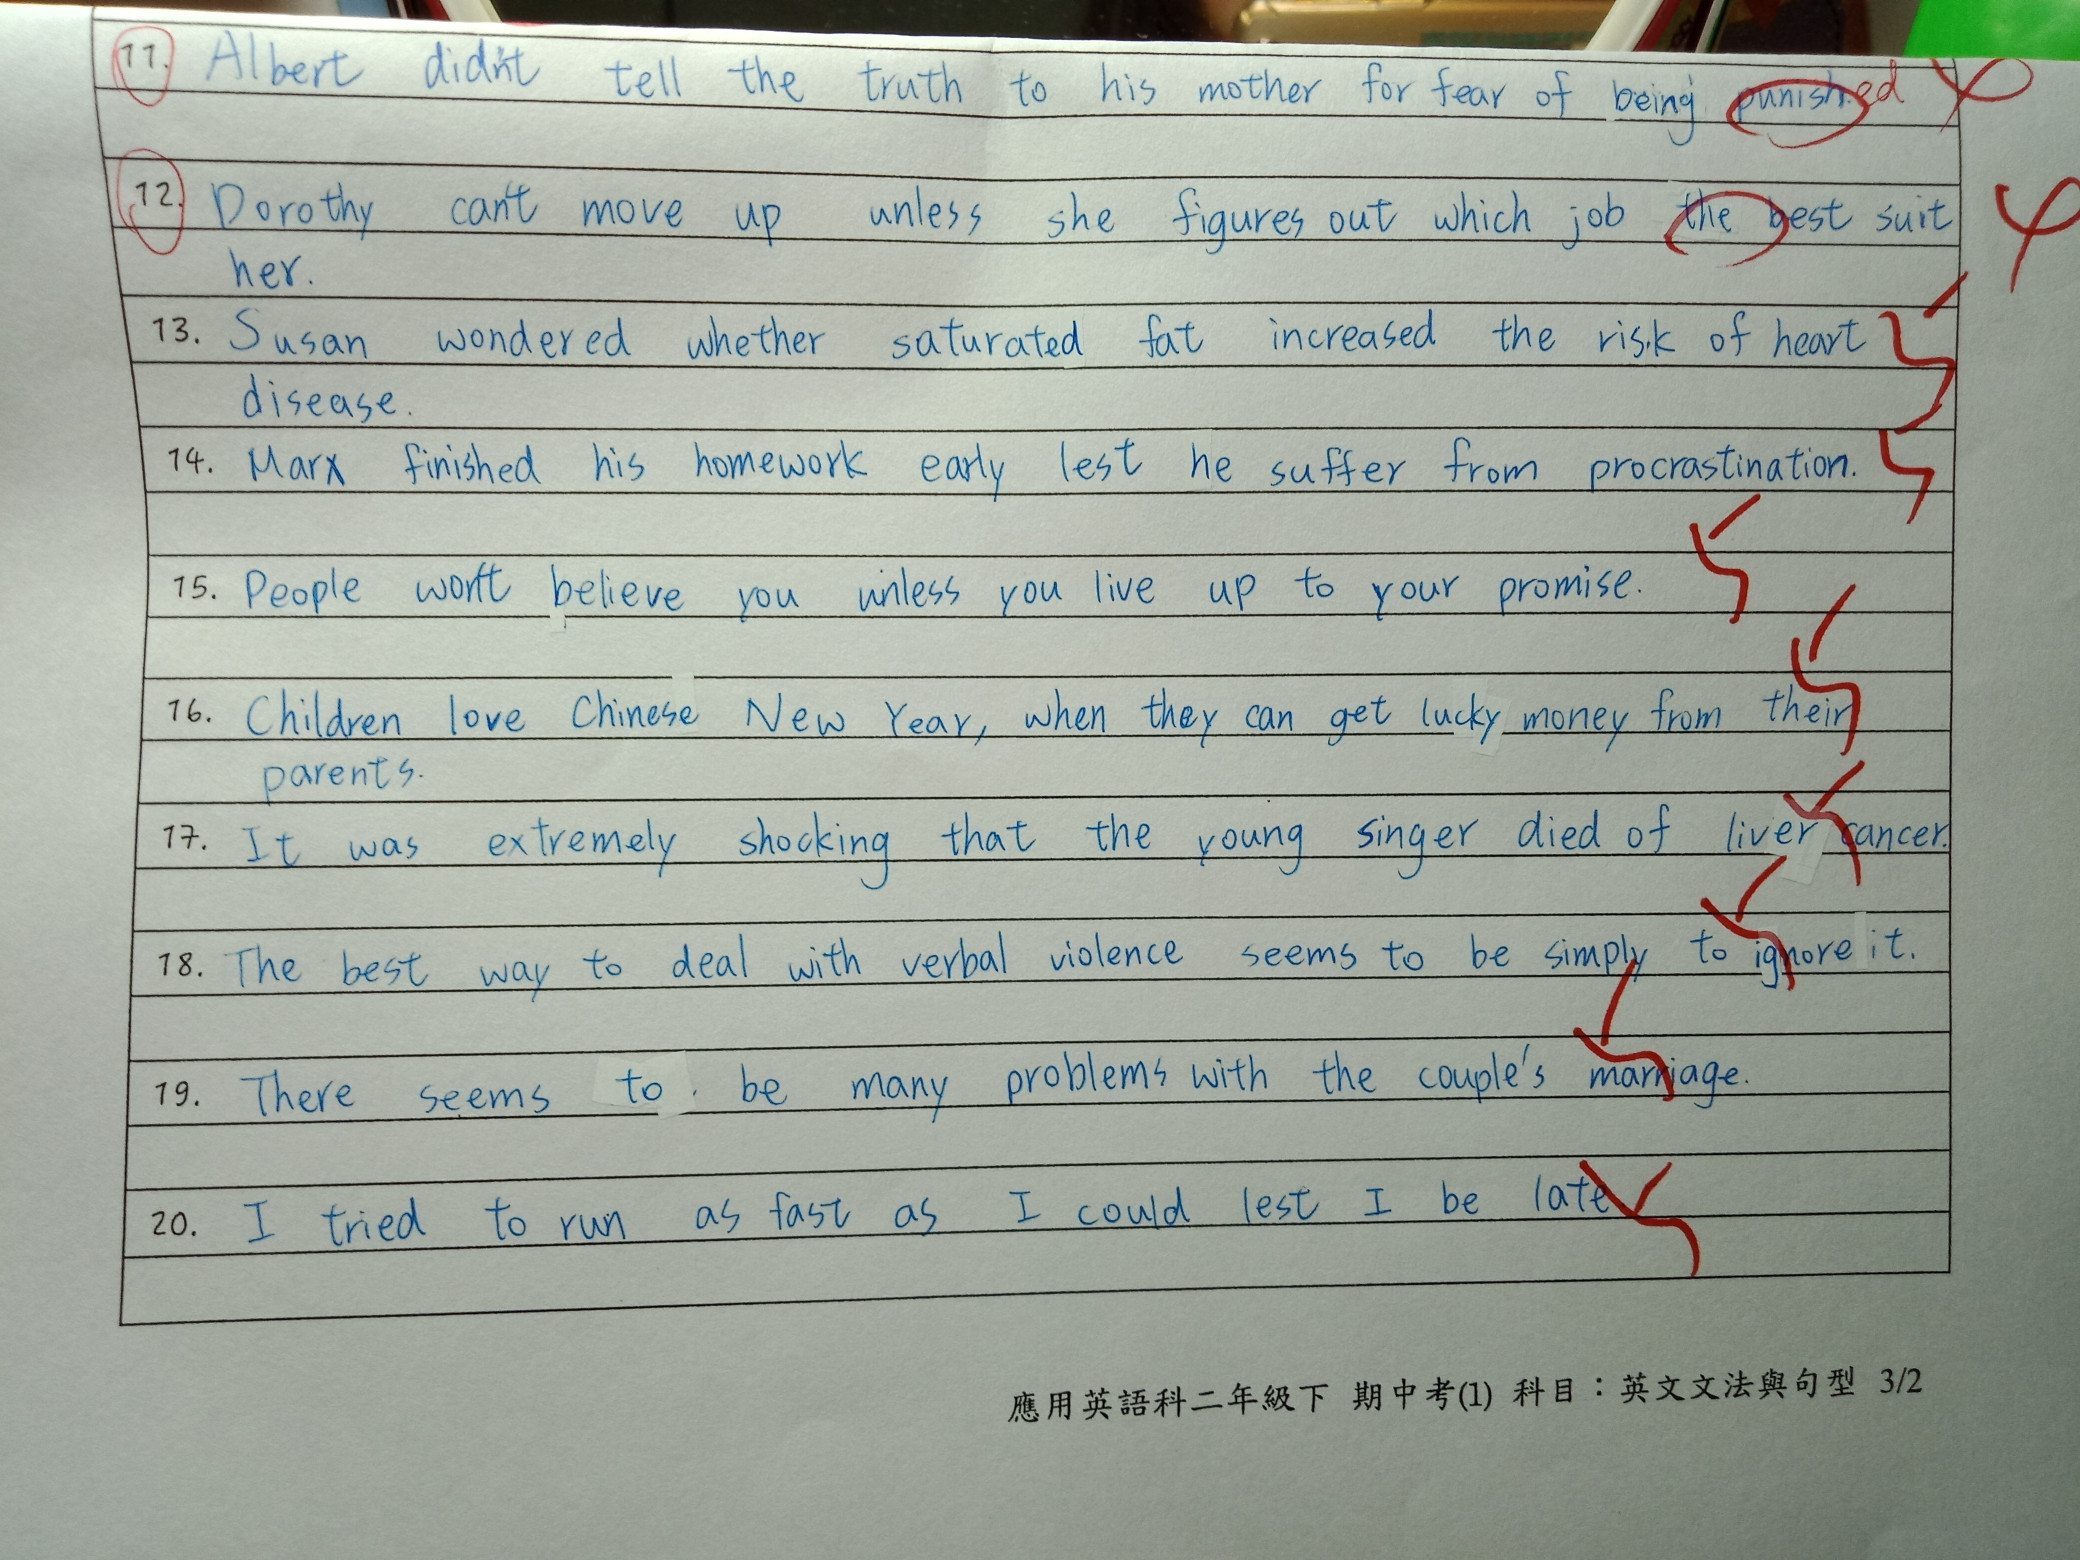 11. Albert didn't tell the truth to his mother for fear of being punished
12. Dorothy can't move up unless she figures out which job the best suit
her.
13. Susan wondered whether saturated fat increased the risk of heart
disease.
14. Marx finished his homework early lest he suffer from procrastination.
15. People won't believe you unless you live up to your promise.
16. Children love Chinese New Year, when they can get lucky money from their
parents.
17. It was extremely shocking that the young singer died of liver cancer.
18. The best way to deal with verbal violence seems to be simply to ignore it.
19. There seems to be many problems with the couple's marriage.
20. I tried to run as fast as I could lest I be late
應用英語科二年級下 期中考(1) 科目：英文文法與句型 3/2